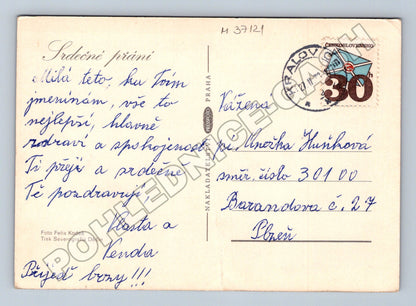 M 37121
Srdečné přání
Milá teto, ku Tvým
jmeninám, vše to
nejlepší, hlavně
zdraví a spokojenost
Ti přeje a srdečně
Tě pozdravují
Vlasta a
Venda
Přijeď brzy!!!
Foto Felix Kodeš
Tisk Severografia Děčín
NAKLADATELSTVÍ
PRAHA
KRALOV
ČESKOSLOVENSKO
30
Vážená
pí. Anežka Huňková
směr. číslo 301 00
Barandova č. 27
Plzeň
POHLEDNICE-CZ.CZ